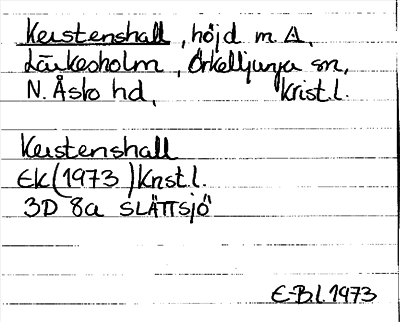 Kerstenshall, höjd m Δ,
Lärkesholm, Örkelljunga sn,
N. Åsbo hd, Krist.l.
Kerstenshall
Ek (1973) Krist.l.
3D 8a SLÄTTSJÖ
E-B.l. 1973